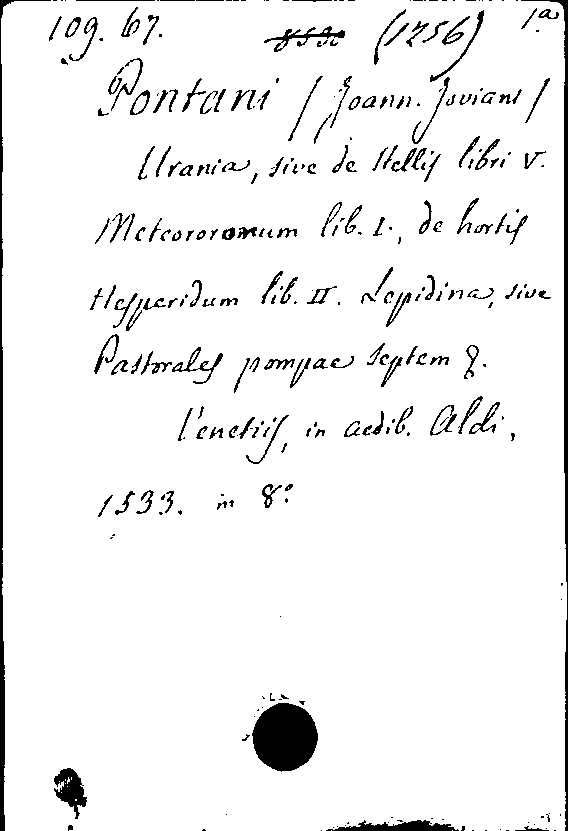 109. 67. 8530 (1256) 1a
Pontani / Joann. Joviani /
Urania, sive de Stellis libri V.
Meteororomum lib. I., de hortis
Hesperidum lib. II. Lepidina, sive
Pastorales pompae septem &.
Venetiis, in aedib. Aldi,
1533. in 8o